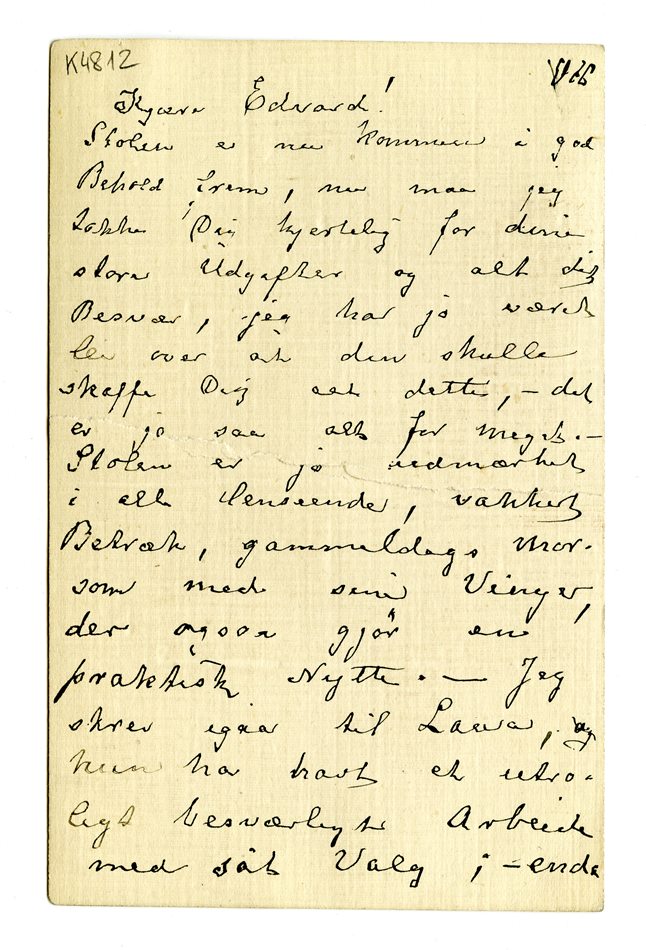 K4812
Kjære Edvard!
Stolen er nu kommen i god
Behold frem, nu maa jeg
takke Dig hjertelig for dine
store Udgifter og alt dit
Besvær, jeg har jo været
lei over at den skulle
skaffe Dig alt dette, – det
er jo saa alt for meget. –
Stolen er jo udmærket
i alle Henseende, vakkert
Betræk, gammeldags mor-
som med sine Vinger,
der ogsaa gjør en
praktisk Nytte. — Jeg
skrev igaa til Laura, og
hun ha havt et utro-
ligt besværligt Arbeide
med sit Valg ; – enda